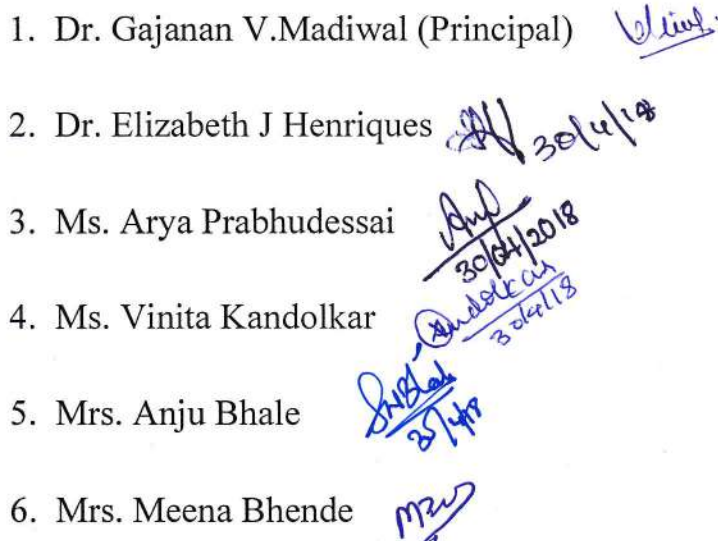 1. Dr. Gajanan V.Madiwal (Principal)
2. Dr. Elizabeth J Henriques 30/4/18
3. Ms. Arya Prabhudessai
30/04/2018
4. Ms. Vinita Kandolkar Kandolkar
30/4/18
5. Mrs. Anju Bhale
6. Mrs. Meena Bhende